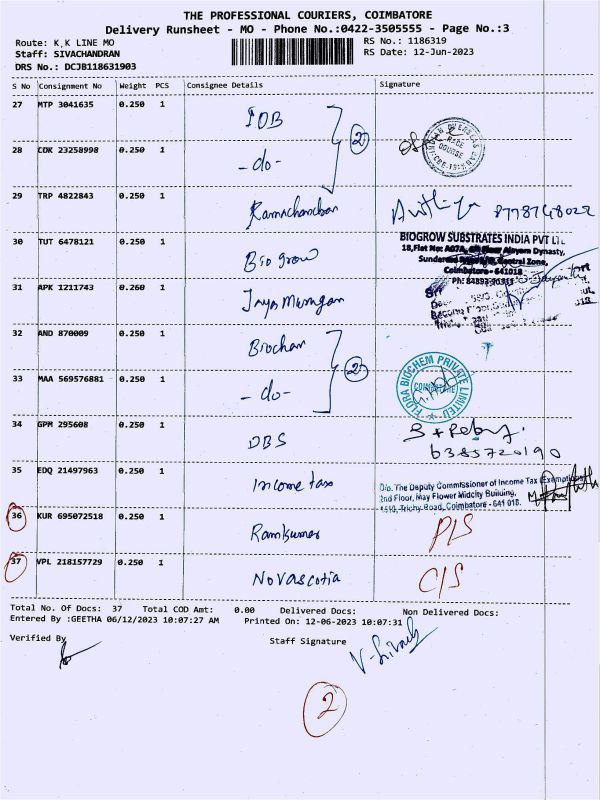 THE PROFESSIONAL COURIERS, COIMBATORE
Delivery Runsheet - MO - Phone No.:0422-3505555 - Page No.:3
Route: K,K LINE MO
RS No.: 1186319
Staff: SIVACHANDRAN
RS Date: 12-Jun-2023
DRS No.: DCJB118631903
S No Consignment No Weight PCS Consignee Details Signature
27 MTP 3041635 0.250 1 IOB
2
28 COK 23258998 0.250 1 -do-
29 TRP 4822843 0.250 1 Ramachandran 8778748022
30 TUT 6478121 0.250 1 Bio grow
BIOGROW SUBSTRATES INDIA PVT LTD
Coimbatore - 641018
31 APK 1211743 0.260 1 Jaya Murugan
32 AND 870009 0.250 1 Biochem
2
33 MAA 569576881 0.250 1 -do-
FLORA BIOCHEM PRIVATE LIMITED
COIMBATORE
34 GPM 295608 0.250 1 DBS
6385720190
35 EDQ 21497963 0.250 1 Income tax
O/o. The Deputy Commissioner of Income Tax (Exemptions)
2nd Floor, May Flower Midcity Building,
1510, Trichy Road, Coimbatore - 641 018.
36 KUR 695072518 0.250 1 Ramkumar P/S
37 VPL 218157729 0.250 1 Novascotia C/S
Total No. Of Docs: 37 Total COD Amt: 0.00 Delivered Docs: Non Delivered Docs:
Entered By :GEETHA 06/12/2023 10:07:27 AM Printed On: 12-06-2023 10:07:31
Verified By
Staff Signature
2